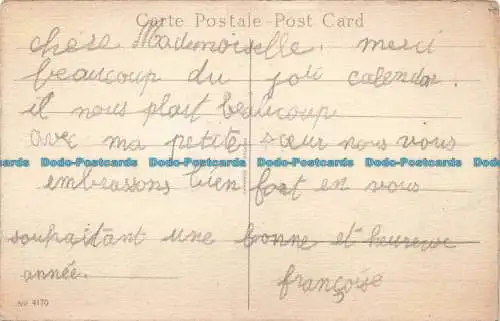 Carte Postale - Post Card
chère Mademoiselle. merci
beaucoup du joli calendar.
il nous plait beaucoup
avec ma petite sœur nous vous
Dodo-Postcards Dodo-Postcards Dodo-Postcards Dodo-Postcards Dodo-Postcards
embrassons bien fort en vous
souhaitant une bonne et heureuse
année.
françoise
4170